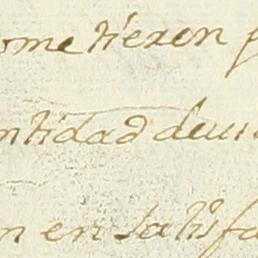 ometieren
ntidad deui
n en satisfa